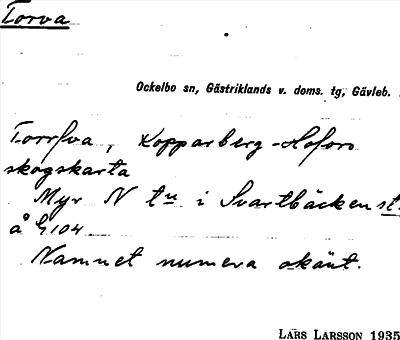 Torva
Ockelbo sn, Gästriklands v. doms. tg, Gävleb.
Torrfva, Kopparberg-Hofors
skogskarta
Myr N t<u>n</u> i Svartbäckens t.
å G104
Namnet numera okänt.
LARS LARSSON 1935